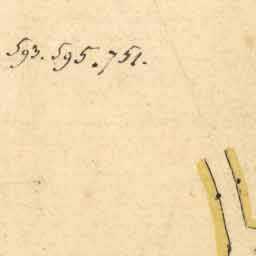 593. 595. 751.